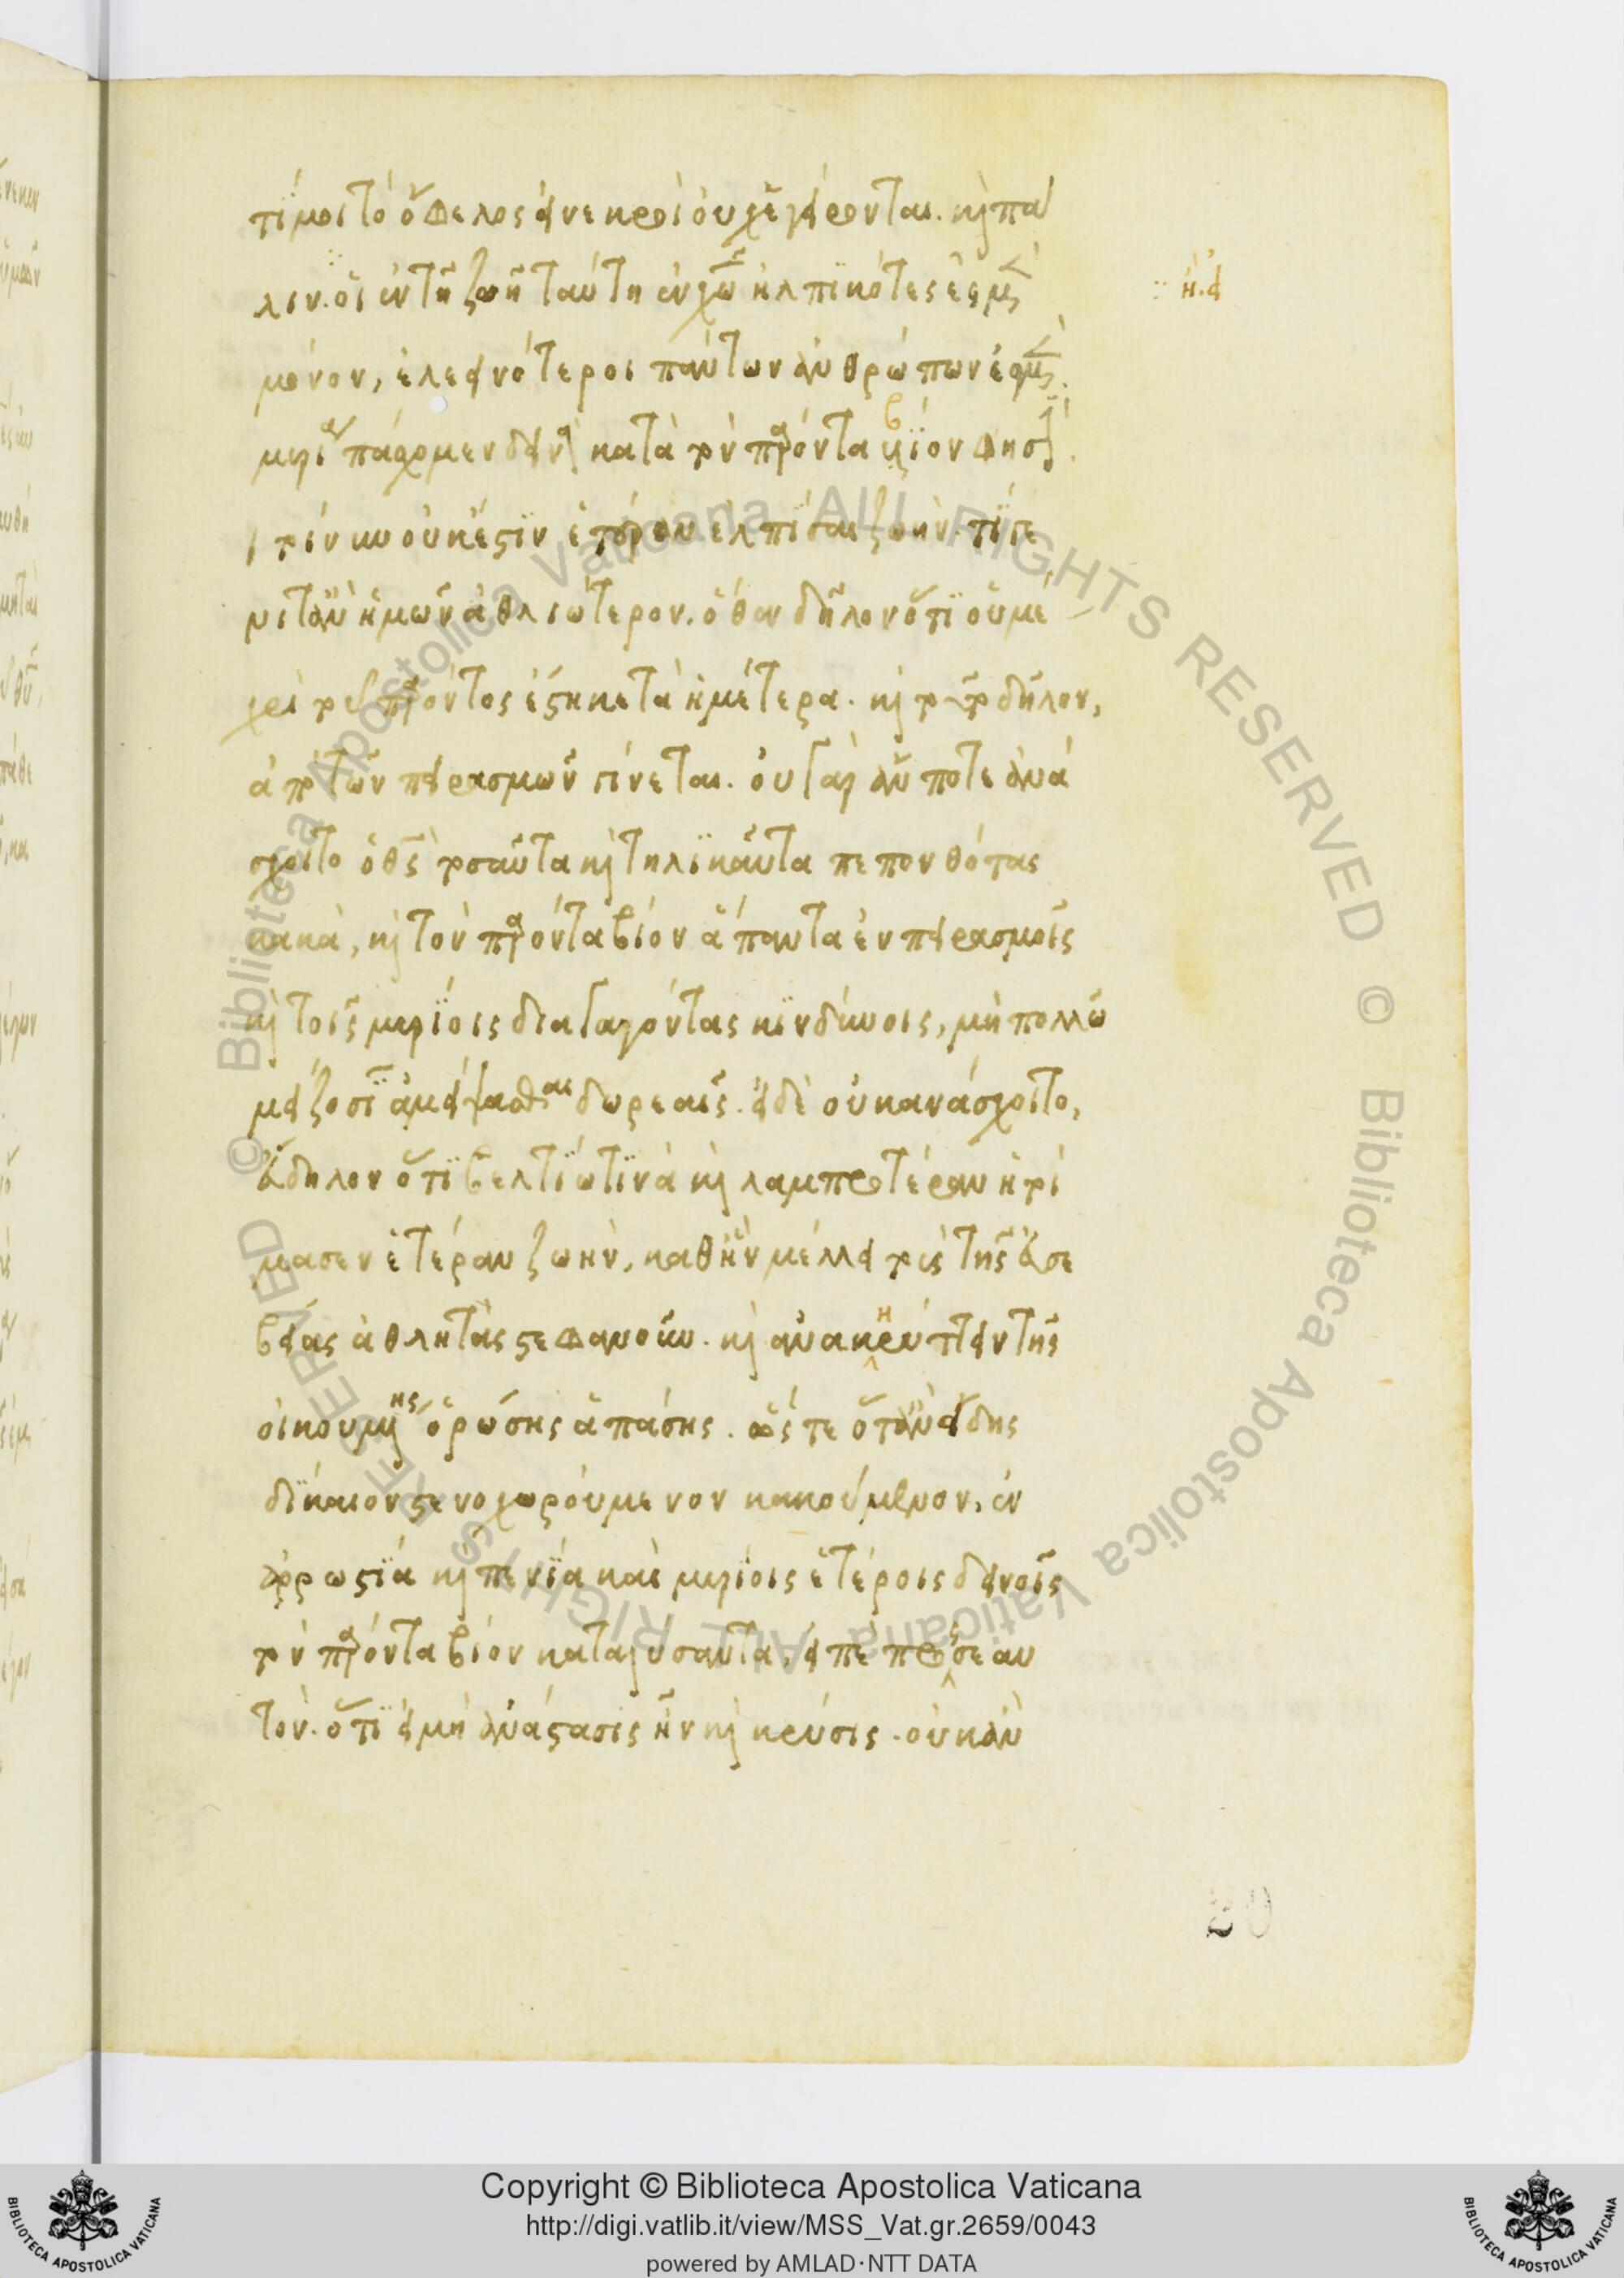 τί μοι τὸ ὄφελος εἰ νεκροὶ οὐκ ἐγείρονται. καὶ πά
λιν. οἱ ἐν τῇ ζωῇ ταύτῃ ἐν χω ἠλπικότες ἐσμὲν
μόνον, ἐλεεινότεροι πάντων ἀνθρώπων ἐσμέν.
μυρία πάσχομεν δεινὰ κατὰ τὸν παρόντα βίον φησί.
τοίνυν οὐκ ἔστιν ἑτέραν ἐλπίσαι ζωὴν. τί γέ
νοιτ' ἂν ἡμῶν ἀθλιώτερον. ὅθεν δῆλον ὅτι οὐ μέ
χρι τοῦ παρόντος ἕστηκε τὰ ἡμέτερα. καὶ τοῦτο δῆλον,
ἀπὸ τῶν πειρασμῶν γίνεται. οὐ γὰρ ἄν ποτε ἀνά
σχοιτο ὁ θς τοσαῦτα καὶ τηλικαῦτα πεπονθότας
κακὰ, καὶ τὸν παρόντα βίον ἅπαντα ἐν πειρασμοῖς
καὶ τοῖς μυρίοις διαγαγόντας κινδύνοις, μὴ πολλῷ
μείζοσιν ἀμείψασθαι δωρεαῖς. εἰ δὲ οὐκ ἀνάσχοιτο,
εὔδηλον ὅτι βελτίω τινὰ καὶ λαμπροτέραν ἡτοί
μασεν ἑτέραν ζωὴν, καθ' ἣν μέλλει τοὺς τῆς εὐσε
βείας ἀθλητὰς στεφανοῦν. καὶ ἀνακηρύττειν τῆς
οἰκουμένης ὁρώσης ἁπάσης. ὥστε ὅταν εἴδῃς
δίκαιον στενοχωρούμενον κακούμενον, ἐν
ἀρρωστίᾳ καὶ πενίᾳ καὶ μυρίοις ἑτέροις δεινοῖς
τὸν παρόντα βίον καταλύσαντα, εἰπὲ πρὸς ἑαυ
τόν. ὅτι εἰ μὴ ἀνάστασις ἦν καὶ κρίσις. οὐκ ἂν
Copyright © Biblioteca Apostolica Vaticana
http://digi.vatlib.it/view/MSS_Vat.gr.2659/0043
powered by AMLAD·NTT DATA